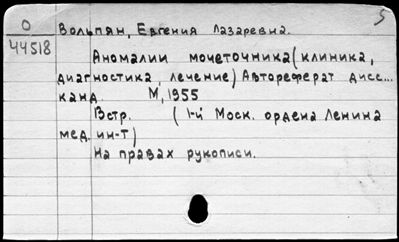 О
44518
5
Вольпян, Евгения Лазаревна.
Аномалии мочеточника (клиника,
диагностика, лечение) Автореферат дисс...
канд. М, 1955
Встр. (1-й Моск. ордена Ленина
мед. ин-т)
На правах рукописи.